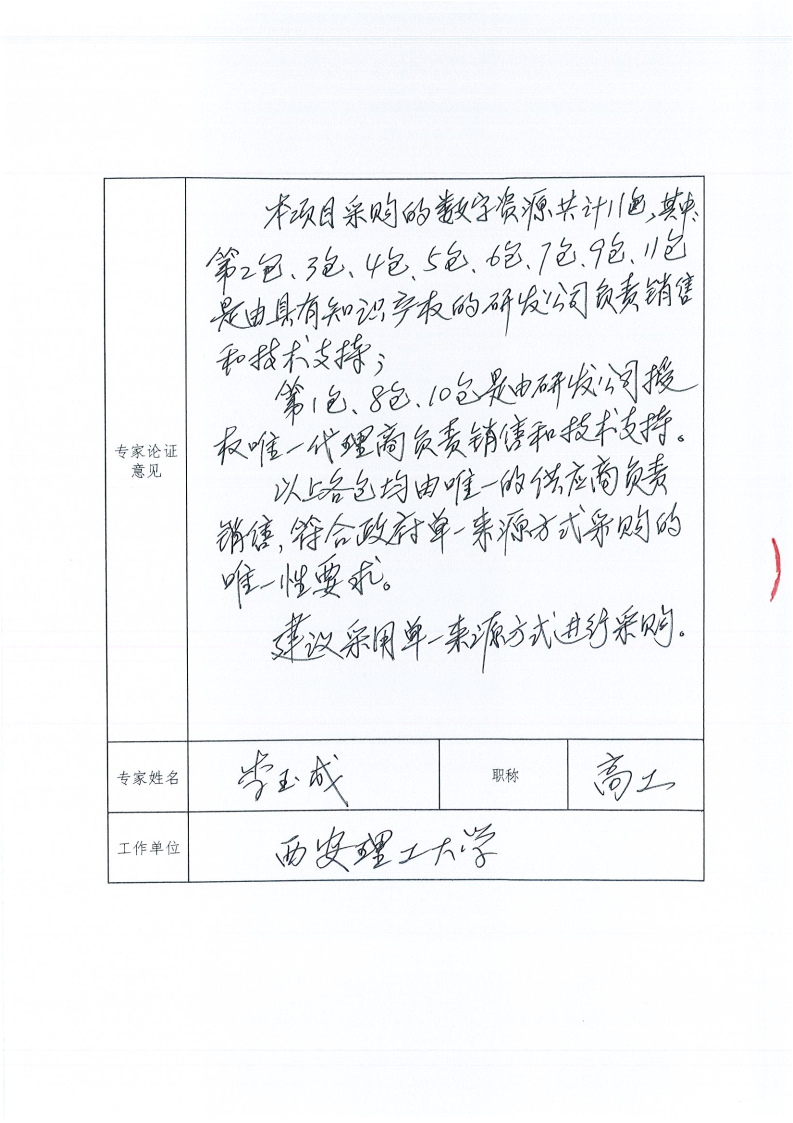 专家论证
意见
本项目采购的数字资源共计11包,其中:
第2包、3包、4包、5包、6包、7包、9包、11包
是由具有知识产权的研发公司负责销售
和技术支持;
第1包、8包、10包是由研发公司授
权唯一代理商负责销售和技术支持。
以上各包均由唯一的供应商负责
销售,符合政府单一来源方式采购的
唯一性要求。
建议采用单一来源方式进行采购。
专家姓名 李玉成 职称 高工
工作单位 西安理工大学